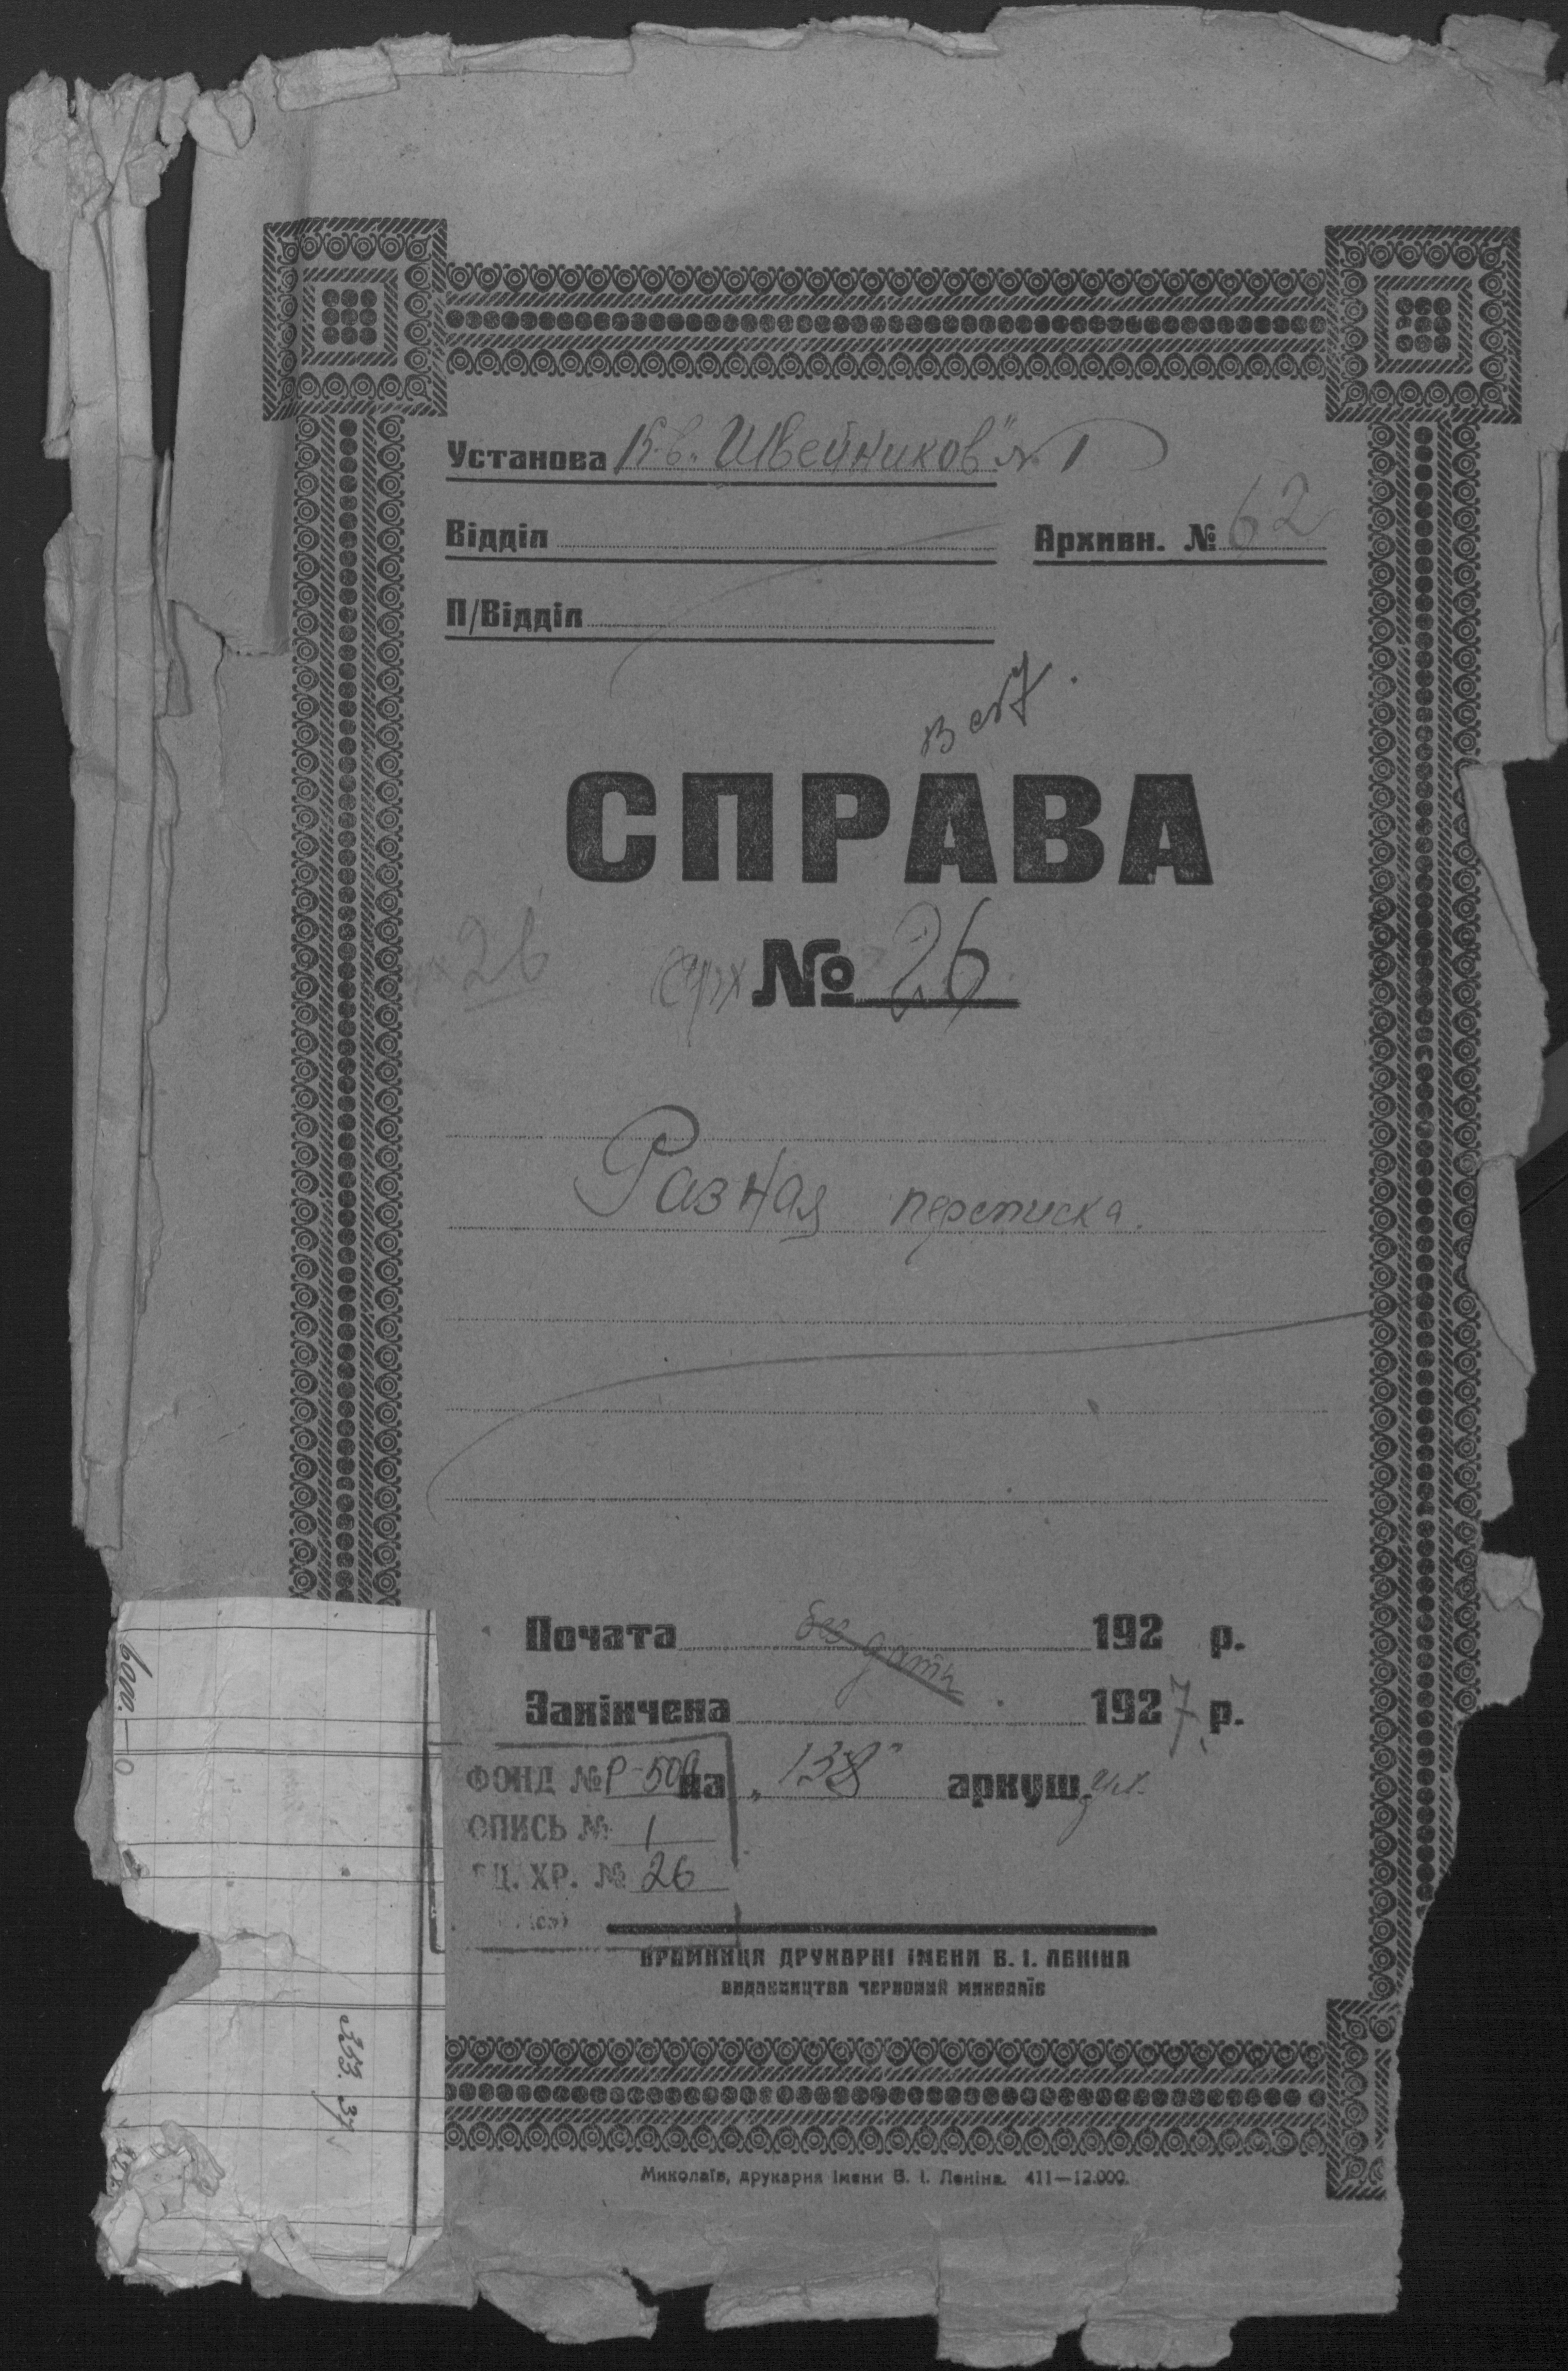 Установа К-в. "Швейников" № 1
Відділ
Архивн. № 62
П/Відділ
СПРАВА
26
арх № 26
Разная переписка.
Почата без даты 192 р.
Закінчена 1927 р.
на "138" аркуш. ах.
ФОНД № Р-509
ОПИСЬ № 1
ЕД. ХР. № 26
КРАМНИЦЯ ДРУКАРНІ ІМЕНИ В. І. ЛЕНІНА
ВИДАВНИЦТВА ЧЕРВОНИЙ МИКОЛАЇВ
Миколаїв, друкарня імени В. І. Леніна. 411—12.000.
353.37